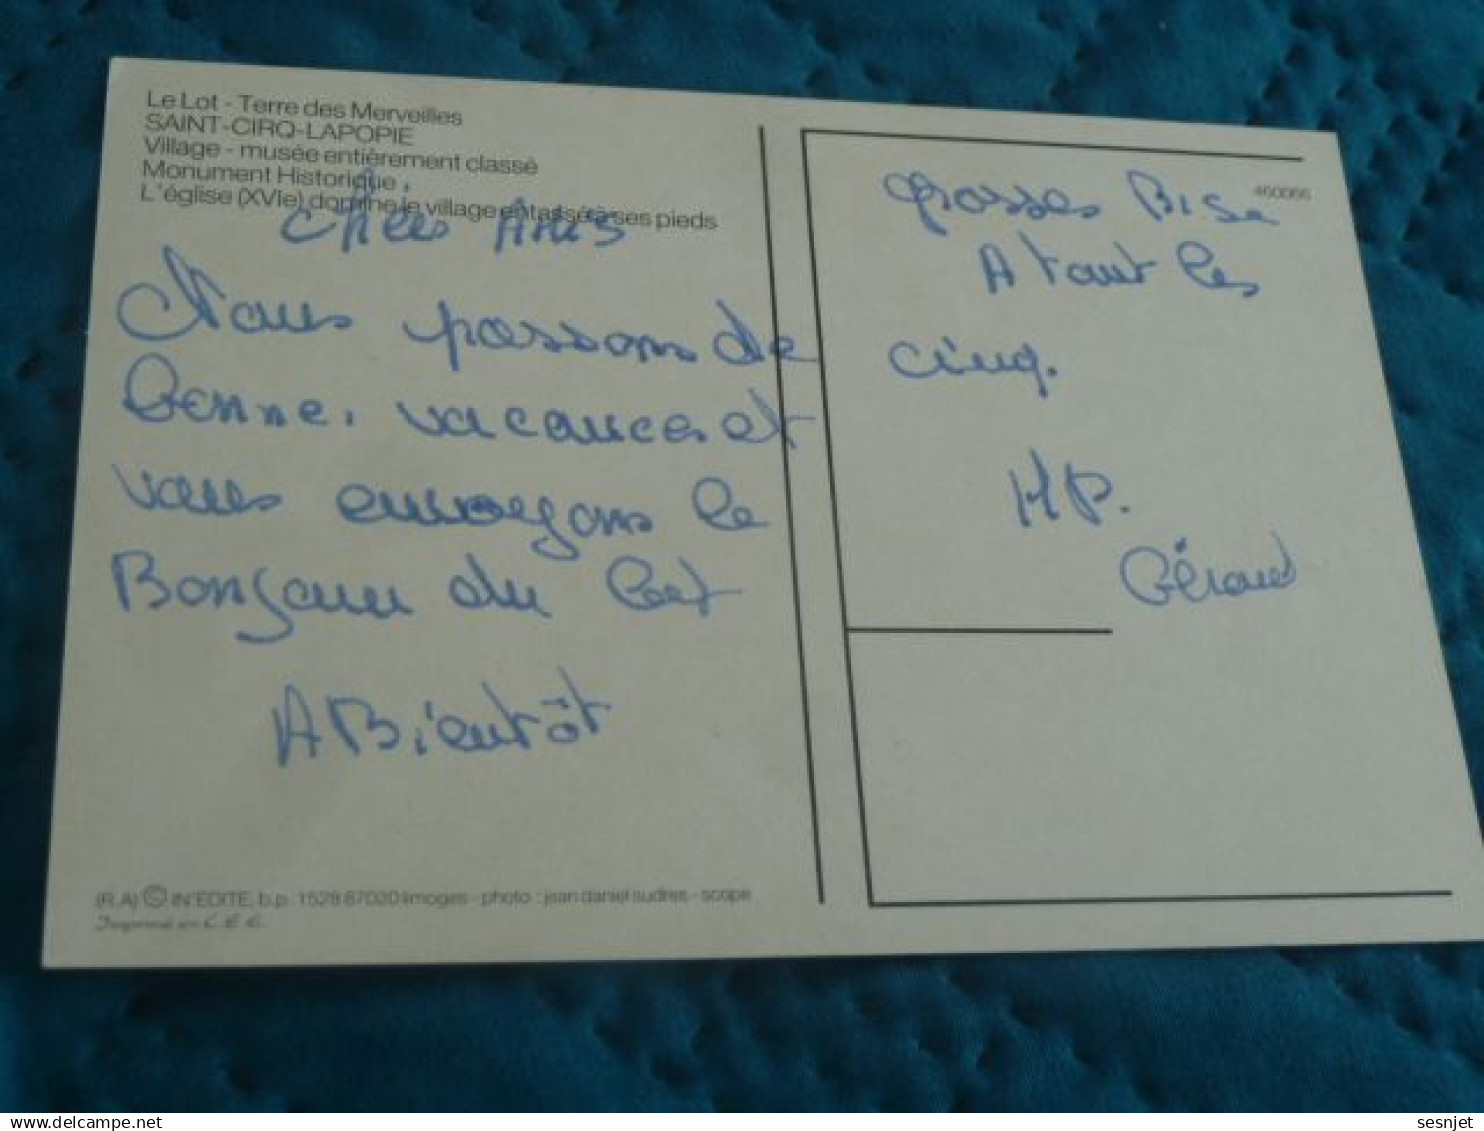 Le Lot - Terre des Merveilles
SAINT-CIRQ-LAPOPIE
Village - musée entièrement classé
Monument Historique.
L'église (XVIe) domine le village entassé à ses pieds
Chers Amis
Nous passons de
bonne. vacances et
vous envoyons le
Bonjour du Lot
A Bientôt
460066
grosses Bise
A tout les
cinq.
H P.
Gérard
(R.A) © IN'EDITE, b.p. 1528 87020 limoges - photo : jean daniel sudres - scope
Imprimé en C.E.E.
sesnjet
delcampe.net